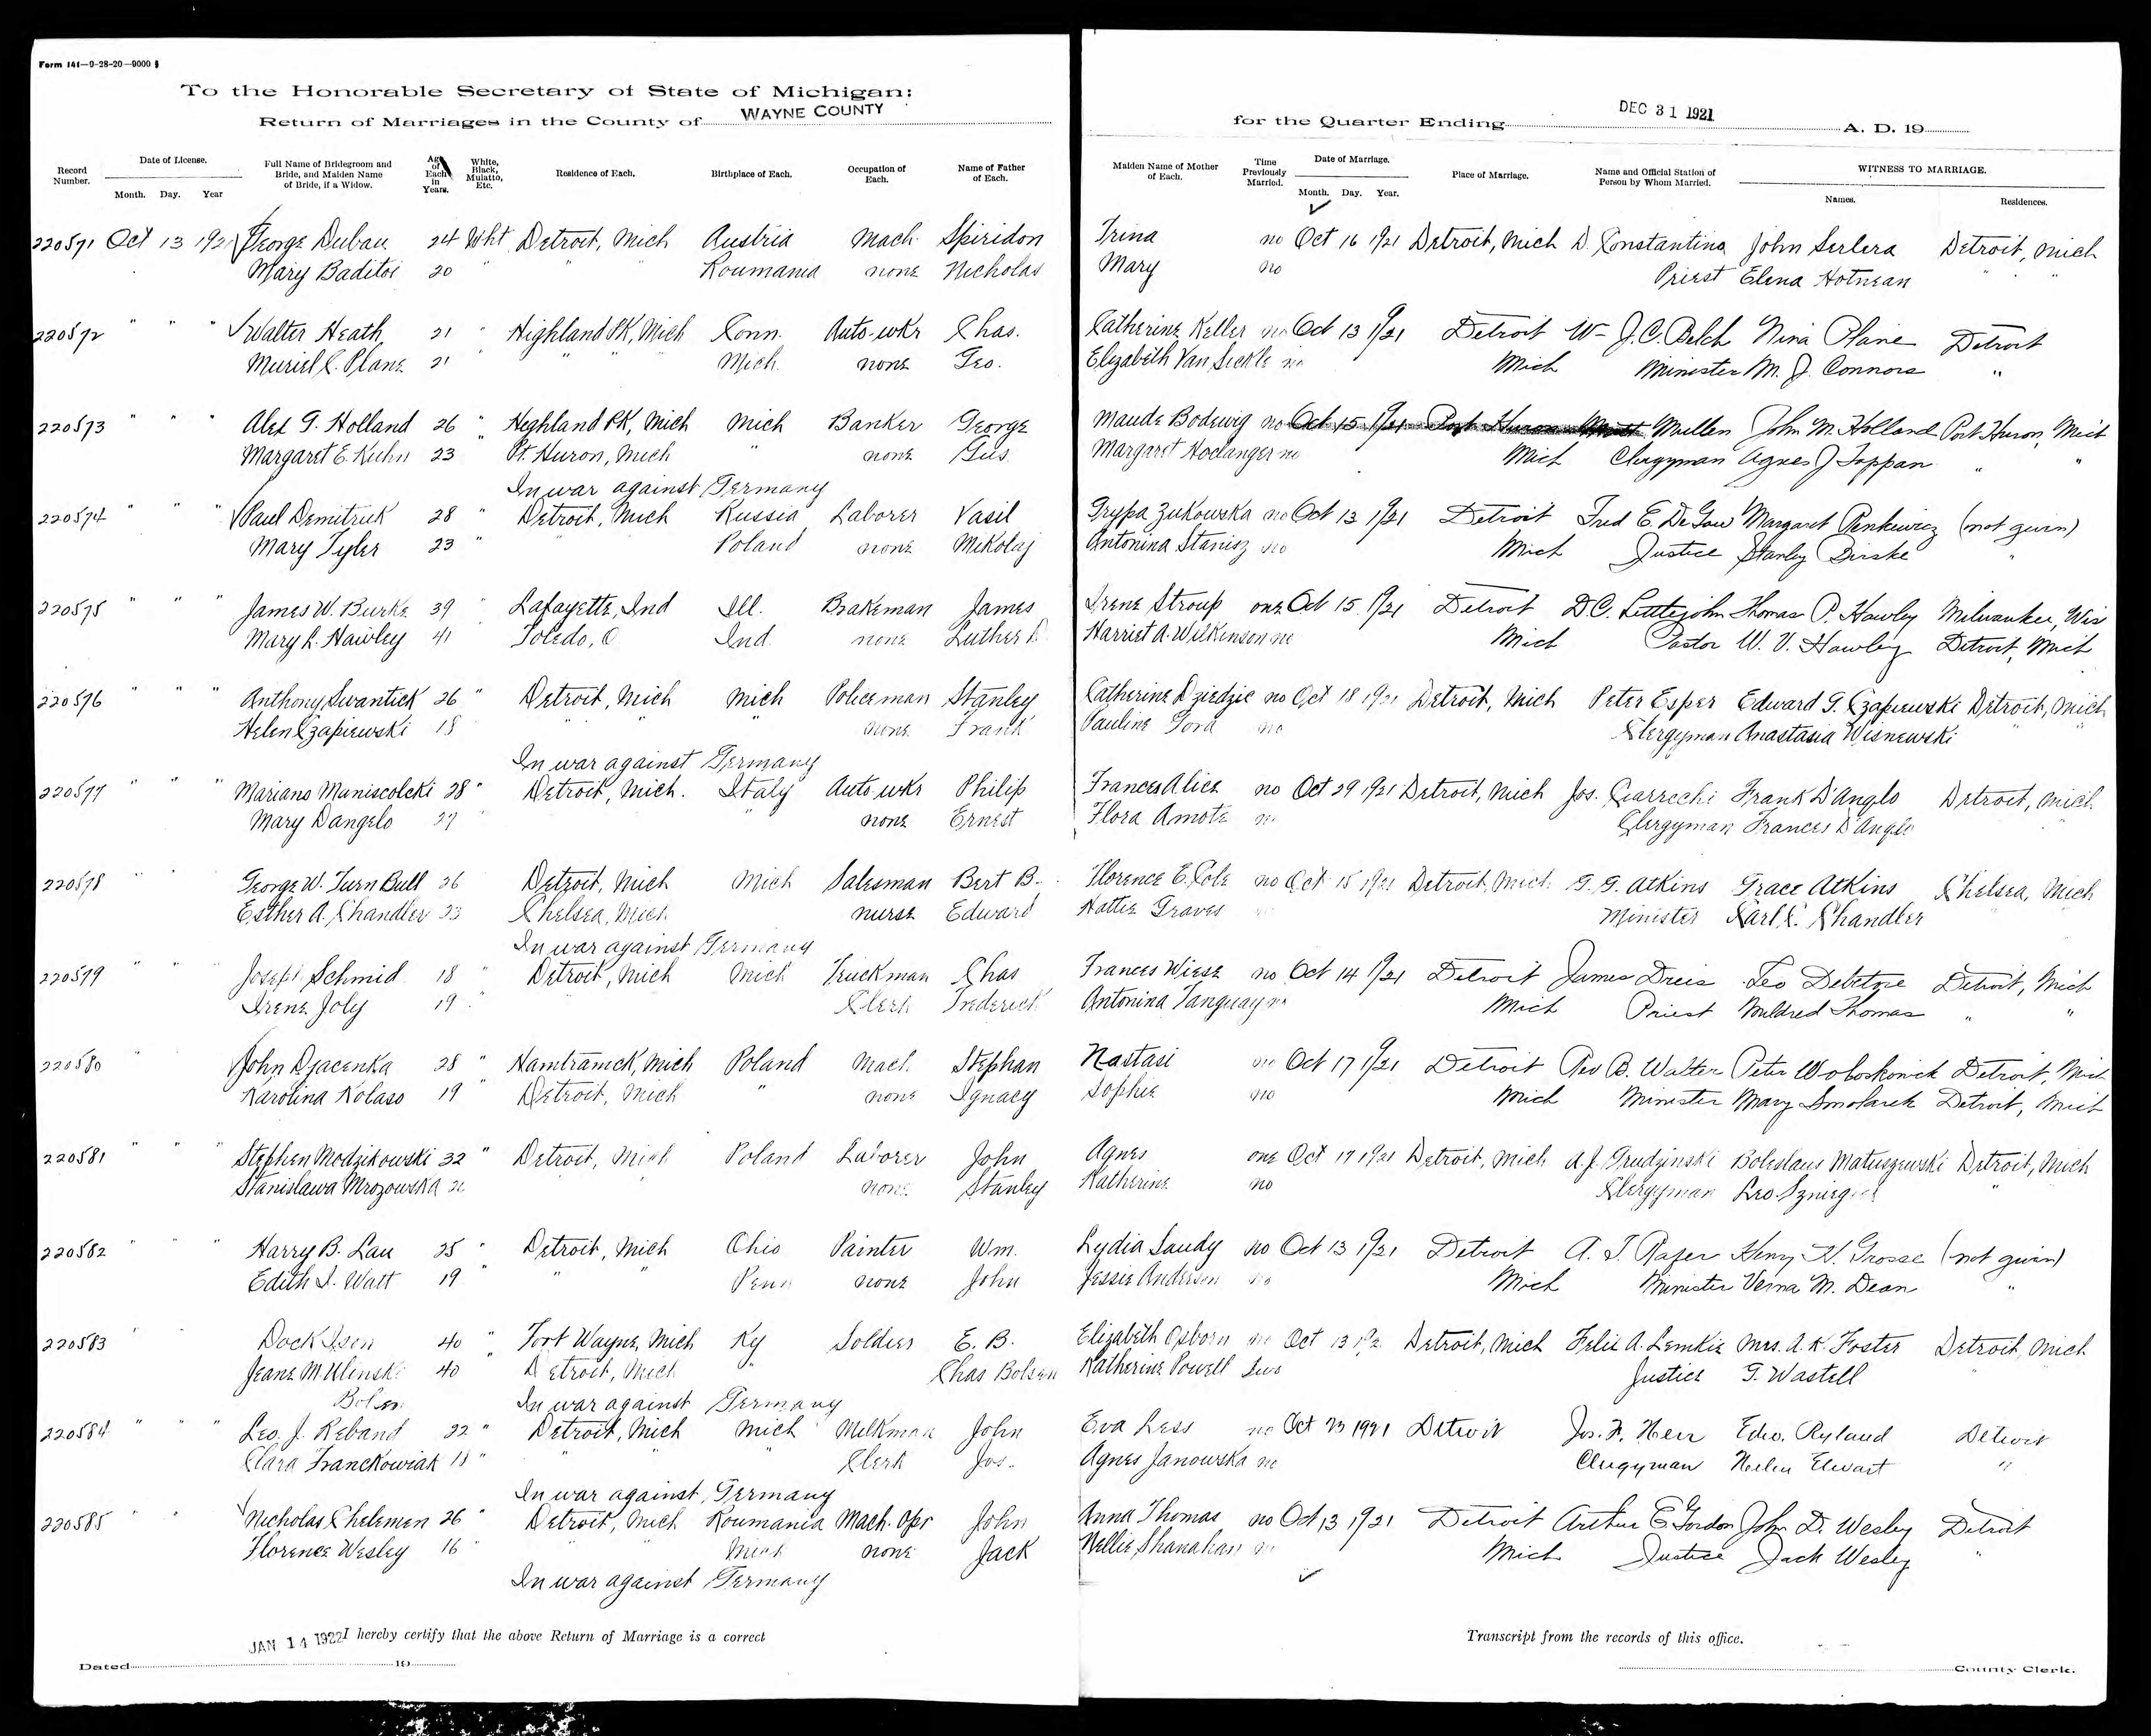 Form 141—9-28-20—9000
To the Honorable Secretary of State of Michigan:
Return of Marriages in the County of WAYNE COUNTY for the Quarter Ending DEC 31 1921 A. D. 19
Record Number. Date of License. Month. Day. Year Full Name of Bridegroom and Bride, and Maiden Name of Bride, if a Widow. Age of Each in Years. White, Black, Mulatto, Etc. Residence of Each. Birthplace of Each. Occupation of Each. Name of Father of Each. Maiden Name of Mother of Each. Time Previously Married. Date of Marriage. Month. Day. Year. Place of Marriage. Name and Official Station of Person by Whom Married. WITNESS TO MARRIAGE. Names. Residences.
220571 Oct 13 1921 George Dubau 24 Wht Detroit, Mich Austria Mach. Spiridon Irina no Oct 16 1921 Detroit, Mich D. Constantino John Serlera Detroit, Mich
Mary Baditoi 20 " " " Roumania none Nicholas Mary no Priest Elena Hotnean " "
220572 " " " Walter Heath 21 " Highland PK, Mich Conn. Auto-wkr Chas. Catherine Keller no Oct 13 1921 Detroit W- J.C. Belch Nina Plane Detroit
Muriel C. Plane 21 " " " Mich. none Geo. Elizabeth Van Sickle no Mich Minister M. J. Connors "
220573 " " " Alex G. Holland 26 " Highland PK, Mich Mich Banker George Maude Bodewig no Oct 15 1921 Port Huron Mullen John M. Holland Port Huron, Mich
Margaret E. Kuhn 23 " Pt. Huron, Mich " none Gus Margaret no Mich Clergyman Agnes J Tappan " "
In war against Germany
220574 " " " Paul Demitruk 28 " Detroit, Mich Russia Laborer Vasil Grypa Zukowska no Oct 13 1921 Detroit Fred E. De Gaw Margaret Penkiewicz (not given)
Mary Tyler 23 " " " Poland none Mikolaj Antonina Stanisz no Mich Justice Stanley Zirske "
220575 " " " James W. Burke 39 " Lafayette, Ind Ill. Brakeman James Irene Stroup one Oct 15 1921 Detroit D.C. Littlejohn Thomas P. Hawley Milwaukee, Wis
Mary L. Hawley 41 Toledo, O Ind. none Luther D Harriet A. Wilkinson no Mich Pastor W. V. Hawley Detroit, Mich
220576 " " " Anthony Swantick 26 " Detroit, Mich Mich Policeman Stanley Catherine Dziedzic no Oct 18 1921 Detroit, Mich Peter Esper Edward G. Czapiewski Detroit, Mich
Helen Czapiewski 18 " " " none Frank Pauline Ford no Clergyman Anastasia Wisnewski " "
In war against Germany
220577 " " " Mariano Maniscolcki 28 " Detroit, Mich. Italy Auto wkr Philip Frances Alica no Oct 29 1921 Detroit, Mich Jos. Ciarrochi Frank D'Anglo Detroit, Mich.
Mary Dangelo 27 " none Ernest Flora Amote no Clergyman Frances D'Anglo "
220578 " " George W. Turn Bull 26 Detroit, Mich Mich Salesman Bert B. Florence E. Cole no Oct 15 1921 Detroit, Mich G. G. Atkins Grace Atkins Chelsea, Mich
Esther A. Chandler 23 Chelsea, Mich nurse Edward Hattie Graves Minister Karl C. Chandler
In war against Germany
220579 " " Joseph Schmid 18 " Detroit, Mich Mich Truckman Chas Frances Wiese no Oct 14 1921 Detroit James Dreis Leo Debetore Detroit, Mich
Irene Joly 19 " Clerk Frederick Antonina Tanguay no Mich Priest Mildred Thomas " "
220580 " " John Djacenka 28 " Hamtramck, Mich Poland Mach. Stephan Nastasi no Oct 17 1921 Detroit Rev B. Walter Peter Woloskonick Detroit, Mich
Karolina Kolaso 19 " Detroit, Mich " none Ignacy Sophie no Mich Minister Mary Smolarek Detroit, Mich
220581 " " " Stephen Modzikowski 32 " Detroit, Mich Poland Laborer John Agnes one Oct 17 1921 Detroit, Mich A. J. Grudzinski Boleslaus Matuszewski Detroit, Mich
Stanislawa Mrozowska none Stanley Katherine no Clergyman Leo "
220582 " " " Harry B. Lau 25 " Detroit, Mich Ohio Painter Wm. Lydia Saudy no Oct 13 1921 Detroit A. T. Rafer Henry H. Grosse (not given)
Edith I. Watt 19 " " " Penn none John Jessie Anderson no Mich Minister Verna M. Dean "
220583 " " Dock Ison 40 " Fort Wayne, Mich Ky Soldier E. B. Elizabeth Osborn no Oct 13 192 Detroit, Mich Felix A. Lemkie Mrs. A. K. Foster Detroit, Mich
Jeane M. Ulinski 40 " Detroit, Mich " Chas Bolsen Katherine Powell Two Justice G. Wastell
Bolsen In war against Germany
220584 " " " Leo. J. Reband 22 " Detroit, Mich Mich Milkman John Eva Less no Oct 23 1921 Detroit Jos. F. Herr Edw. Ryland Detroit
Clara Franckowiak 18 " " " " Clerk Jos. Agnes Janowska no Clergyman Helen Elwart "
In war against Germany
220585 " " Nicholas Chelemen 26 " Detroit, Mich Roumania Mach. Opr John Anna Thomas no Oct 13 1921 Detroit Arthur E Gordon John D. Wesley Detroit
Florence Wesley 16 " " " Mich none Jack Nellie Shanahan no Mich Justice Jack Wesley "
In war against Germany
JAN 14 1922 I hereby certify that the above Return of Marriage is a correct Transcript from the records of this office.
Dated 19 County Clerk.